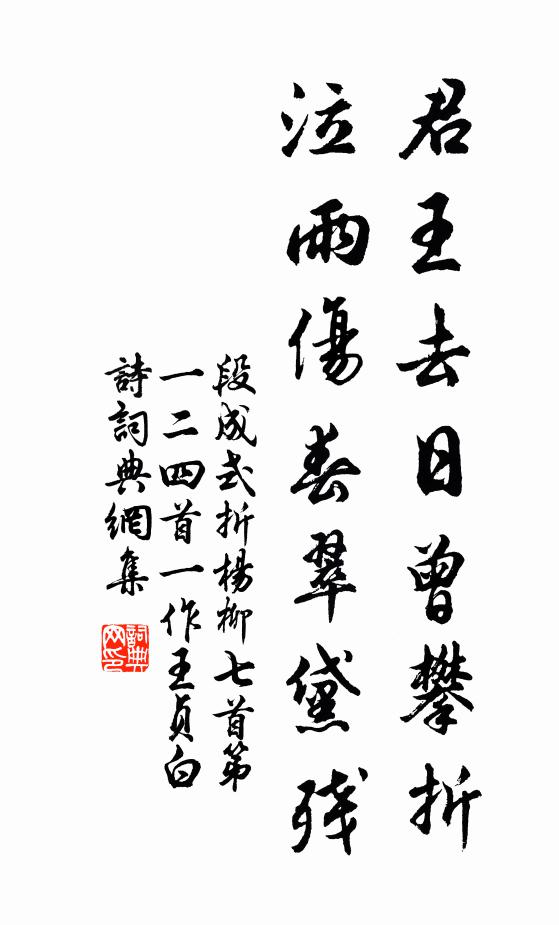 君王去日曾攀折
泣雨傷春翠黛残
段成式折楊柳七首第
一二四首一作王貞白
詩詞典網集
詞典
网印